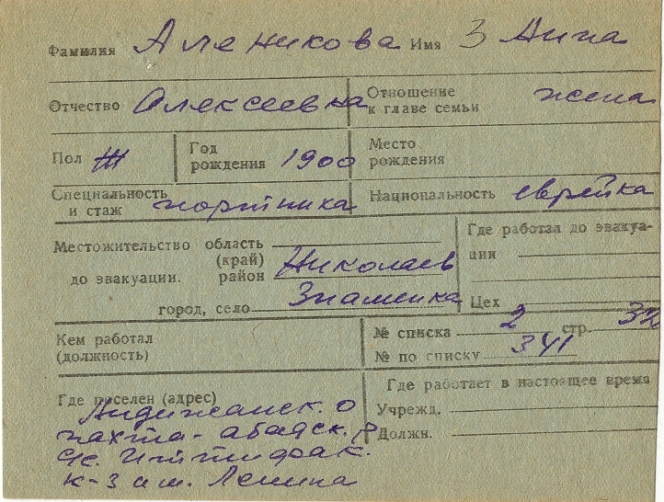 Фамилия Аленикова Имя З Анна
Отчество Алексеевна Отношение к главе семьи жена
Пол Ж Год рождения 1900 Место рождения
Специальность и стаж портниха Национальность еврейка
Местожительство до эвакуации. область
(край) район Николаев
город, село Знаменка
Где работал до эвакуации
Цех
Кем работал (должность)
№ списка 2 стр. 32
№ по списку 341
Где поселен (адрес)
Андижанск. о
пахта-абадск. р
с/с. Иттифак.
к-з им. Ленина
Где работает в настоящее время
Учрежд.
Должн.